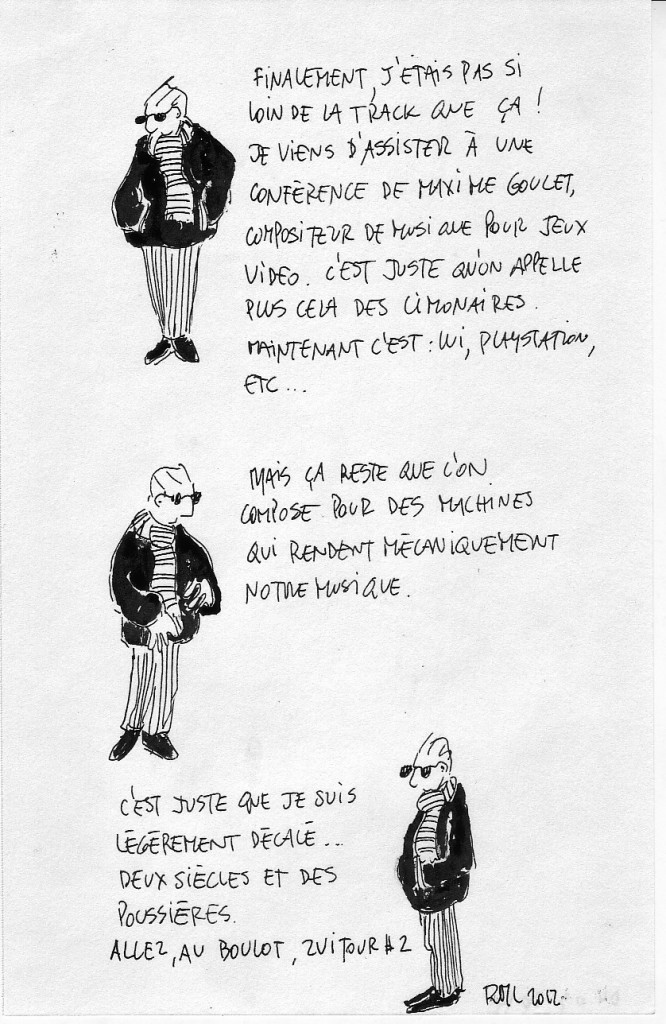 FINALEMENT, J'ÉTAIS PAS SI
LOIN DE LA TRACK QUE ÇA !
JE VIENS D'ASSISTER À UNE
CONFÉRENCE DE MAXIME GOULET,
COMPOSITEUR DE MUSIQUE POUR JEUX
VIDEO. C'EST JUSTE QU'ON APPELLE
PLUS CELA DES LIMONAIRES.
MAINTENANT C'EST : WI, PLAYSTATION,
ETC...
MAIS ÇA RESTE QUE L'ON
COMPOSE POUR DES MACHINES
QUI RENDENT MÉCANIQUEMENT
NOTRE MUSIQUE.
C'EST JUSTE QUE JE SUIS
LÉGÈREMENT DÉCALÉ...
DEUX SIÈCLES ET DES
POUSSIÈRES.
ALLEZ, AU BOULOT, ZUITOUR #2
2012